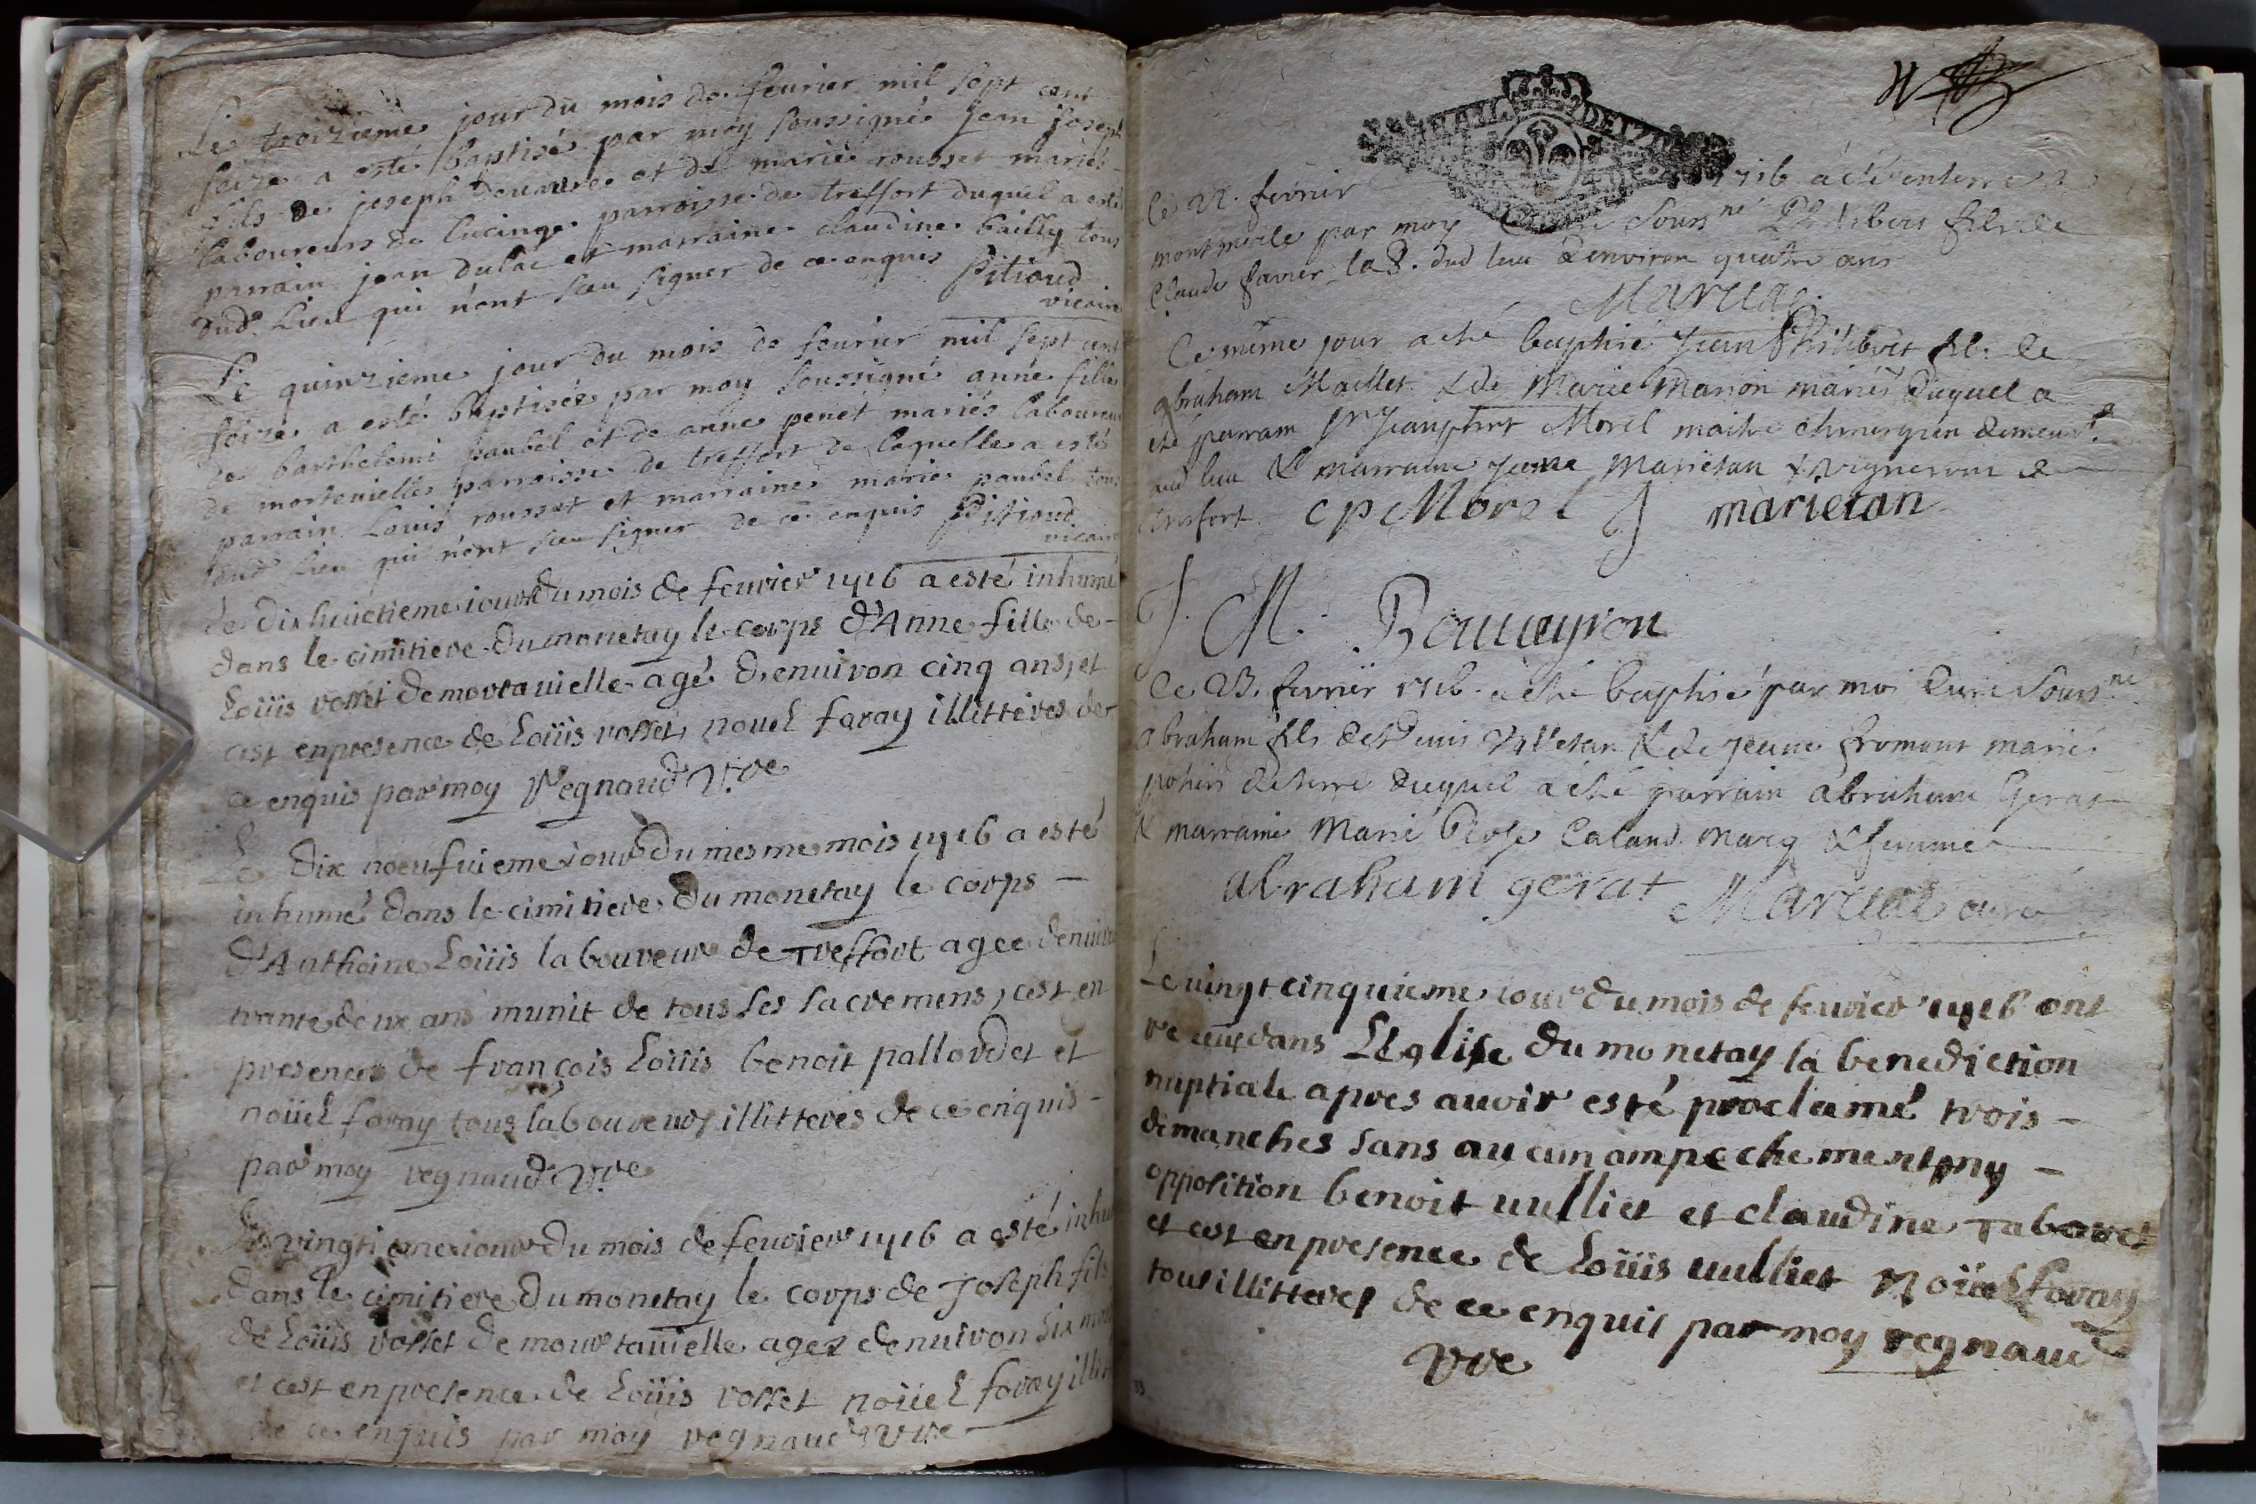 Le troizieme jour du mois de feurier mil sept cent
seize a esté baptisé par moy soussigné Jean Joseph
fils de joseph et de marie rousset mariés
laboureurs de lucinge parroisse de treffort duquel a esté
parrain jean dulac et marraine claudine bailly tous
dud. Lieu qui n'ont sceu signer de ce enquis Pitioud
vicaire
Le quinzieme jour du mois de feurier mil sept cent
seize a esté baptisée par moy soussigné anne fille
de barthelemi paubel et de anne penet mariés laboureurs
de mortauielle parroisse de treffort de laquelle a estés
parrain Louis rousset et marraine marie paubel tous
dud. Lieu qui n'ont sceu signer de ce enquis Pitioud
vicaire
Le dixhuictieme iour du mois de feurier 1716 a esté inhumé
dans le cimitiere du monetay le corps d'Anne fille de
Loüis rosset de mortauielle agé denuiron cinq ans, et
cest enpresence de Loüis rosset, nouel foray illitteres de
ce enquis par moy Regnaud V.re
Le Dix noeufuieme iour du mesme mois 1716 a esté
inhumé dans le cimitiere du monetay le corps
d'Anthoine Loüis laboureur de Treffort agee denuiron
trante deux ans munit de tous ses sacremens, cest en
presence de françois Loüis benoit pallordet et
noüel foray tous laboureurs illitteres de ce enquis
par moy regnaud V.re
Le vingtieme iour du mois de feurier 1716 a esté inhu
dans le cimitiere du monetay le corps de Joseph fils
de Loüis rosset de mourtauielle agez denuiron six mois
et cest enpresence de Loüis rosset noüel foray illit
de ce enquis par moy regnaud V.re
Ce 22. fevrier 1716 a été enterré a
montmerle par moy Curé Souss.né Philibert fils de
Claude favier lab. dud lieu d'environ quatre ans
Ce même jour a été baptisé Jean Philibert fils de
abraham Maillet & de Marie Manon mariés duquel a
été parrain Morel maitre chirurgien demeur.t
aud lieu & marraine Jeanne Marietan vigneronne de
treffort. CP Morel J marietan
J. M. Bouueyron
Ce 23. fevrier 1716. a été baptisé par moi Curé Souss.né
abraham fils de Denis & de Jeanne fromont mariés
potiers de terre duquel a été parrain abraham Gerat
& marraine Marie
abraham gerat curé
Le uingt cinquieme iour du mois de feurier 1716 ont
receux dans L'Eglise du monetay la benediction
nuptiale apres auoir esté proclamé trois
dimanches sans aucun ampechement ny
opposition benoit uulliet et claudine Taboret
et cest enpresence de Loüis uulliet Noüel foray
tous illitteres de ce enquis par moy regnaud
V.re